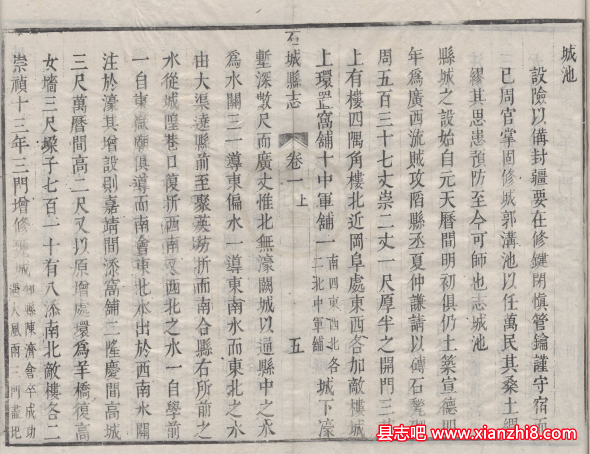 城池
設險以備封疆要在修鍵閉慎管鑰謹守宿而
已周官掌固修城郭溝池以任萬民其桑土綢
繆其思患預防至今可師也志城池
縣城之設始自元天曆間明初俱仍土築宣德
年為廣西流賊攻陷縣丞夏仲謙請以磚石甃
周五百三十七丈崇二丈一尺厚半之開門三
上有樓四隅角樓北近岡阜處東西各加敵樓城
上環置窩舖十中軍舖一南四東西北各二北中軍舖一城下濠
石城縣志 卷一上 五
塹深數尺而廣丈惟北無濠闢城以通縣中之水
為水關三一導東偏水一導東南水而東北之水
由大渠遶縣前至聚英坊折而南合縣右所前之
水從城隍巷口復折西南又西北之水一自學前
一自東嶽廟俱導而南會東北水出於西南水關
注於濠其增設則嘉靖間添窩舖二隆慶間高城
三尺萬曆間高二尺又以原增處環為羊橋復高
女墻三尺垜子七百一十有八添南北敵樓各二
崇禎十三年三門增修城知縣陳濟會卒成功風雨三門盡圮
县志吧
www.xianzhi8.com